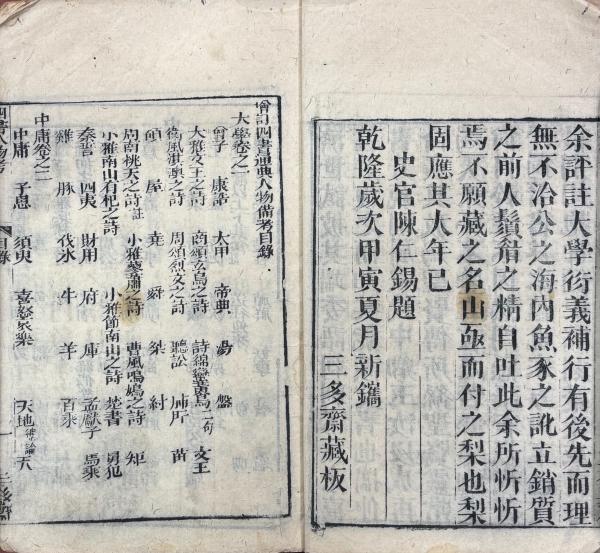 余評註大學衍義補行有後先而理
無不洽公之海內魚豕之訛立銷質
之前人鬚眉之精自吐此余所忻忻
焉不願藏之名山亟而付之梨也梨
固應其大年已
史官陳仁錫題
乾隆歲次甲寅夏月新鐫
三多齋藏板
增訂四書通典人物備考目錄
大學卷之一
曾子 康誥 太甲 帝典 湯 盤
大雅文王之詩 商頌玄鳥之詩 詩綿蠻黃鳥二句 文王
衛風淇澳之詩 周頌烈文之詩 聽訟 肺肝 苗
碩 屋 堯 舜 桀 紂
周南桃夭之詩註 小雅蓼蕭之詩 曹風鳴鳩之詩 矩
小雅南山有杞之詩 小雅節南山之詩 楚書 舅犯
秦誓 四夷 財用 府 庫 孟獻子 馬乘
雞 豚 伐氷 牛 羊 百乘
中庸卷之二
中庸 子思 須臾 喜怒哀樂 天地總論 天
四書人物考 目錄 一